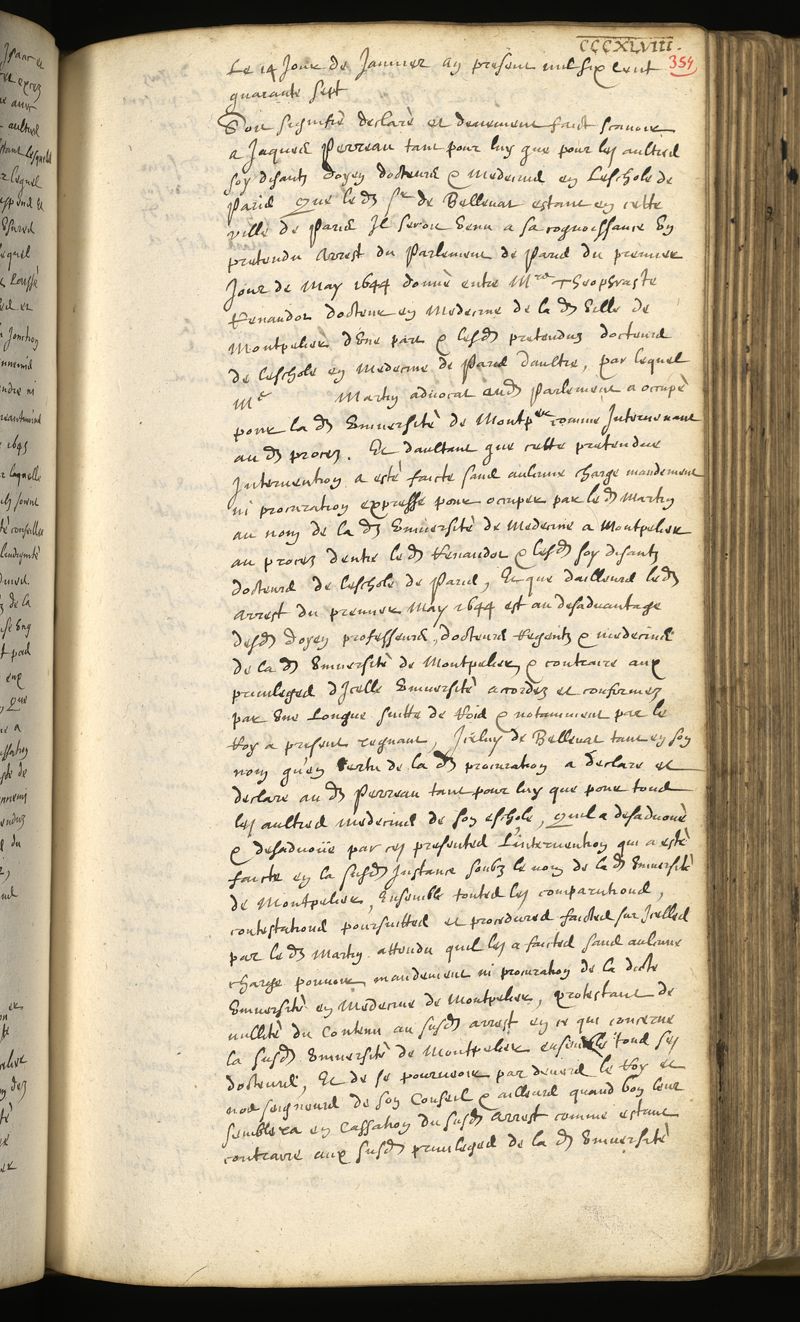 CCCXLVIII.
354
Le 14 Jour de Januier an present mil six cent
quarante sept
Soit signifiè declarè et deuement faict scauoir
a Jaques Perreau tant pour luy que pour les aultres
soy disantz doyen docteurs & Medecins en Leschole de
Paris que led. Sr de Belleual estant en cette
ville de Paris Il seroit venu a sa cognoissance Un
pretendu Arrest du Parlement de Paris du premier
Jour de May 1644 donnè entre Mre Theophraste
Renaudot docteur en Medecine de la d. Ville de
Montpelier d'Une part & lesd. pretendus docteurs
de leschole en Medecine de Paris d'aultre, par lequel
Me Martin aduocat aud. Parlement a occupè
pour la d. Uniuersitè de Montper comme Interuenant
au d. procez. Et daultant que cette pretendue
Interuention a estè faicte sans aulcune charge mandement
ni procuration expresse pour occuper par led. Martin
au nom de la d. Uniuersitè de Medecine a Montpelier
au procez d'entre led. Renaudot & lesd. soy disantz
docteurs de leschole de Paris, Et que d'ailleurs led.
Arrest du premier May 1644 est au desaduantage
desd. doyen professeurs, docteurs Regentz & medecins
de la d. Uniuersitè de Montpelier, & contraire aux
priuileges d'Icelle Uniuersitè accordez et confirmez
par Une Longue suitte de Rois & notamment par le
Roy a present regnant, Iceluy de Belleual tant en son
nom qu'en Vertu de la d. procuration a declare et
declare au d. Perreau tant pour luy que pour tous
les aultres medecins de son eschole, quil a desaduouè
& desaduoüe par ces presentes L'interuention qui a estè
faicte en la susd. Instance soubz le nom de la d. Uniuersitè
de Montpelier, Ensemble toutes les comparutions,
contestations poursuittes et procedures faictes sur Icelles
par le d. Martin attendu quil les a faictes sans aulcune
charge pouuoir mandement ni procuration de la dicte
Uniuersitè en Medecine de Montpelier, protestant de
nullitè du Contenu au susd. arrest en ce qui concerne
la susd. Uniuersitè de Montpelier ensemble tous ses
docteurs, Et de se pouruoir par deuers le Roy et
nos seigneurs de son Conseil & ailleurs quand bon leur
semblera en Cassation du susd. Arrest comme estant
contraire aux susd. priuileges de la d. Uniuersitè